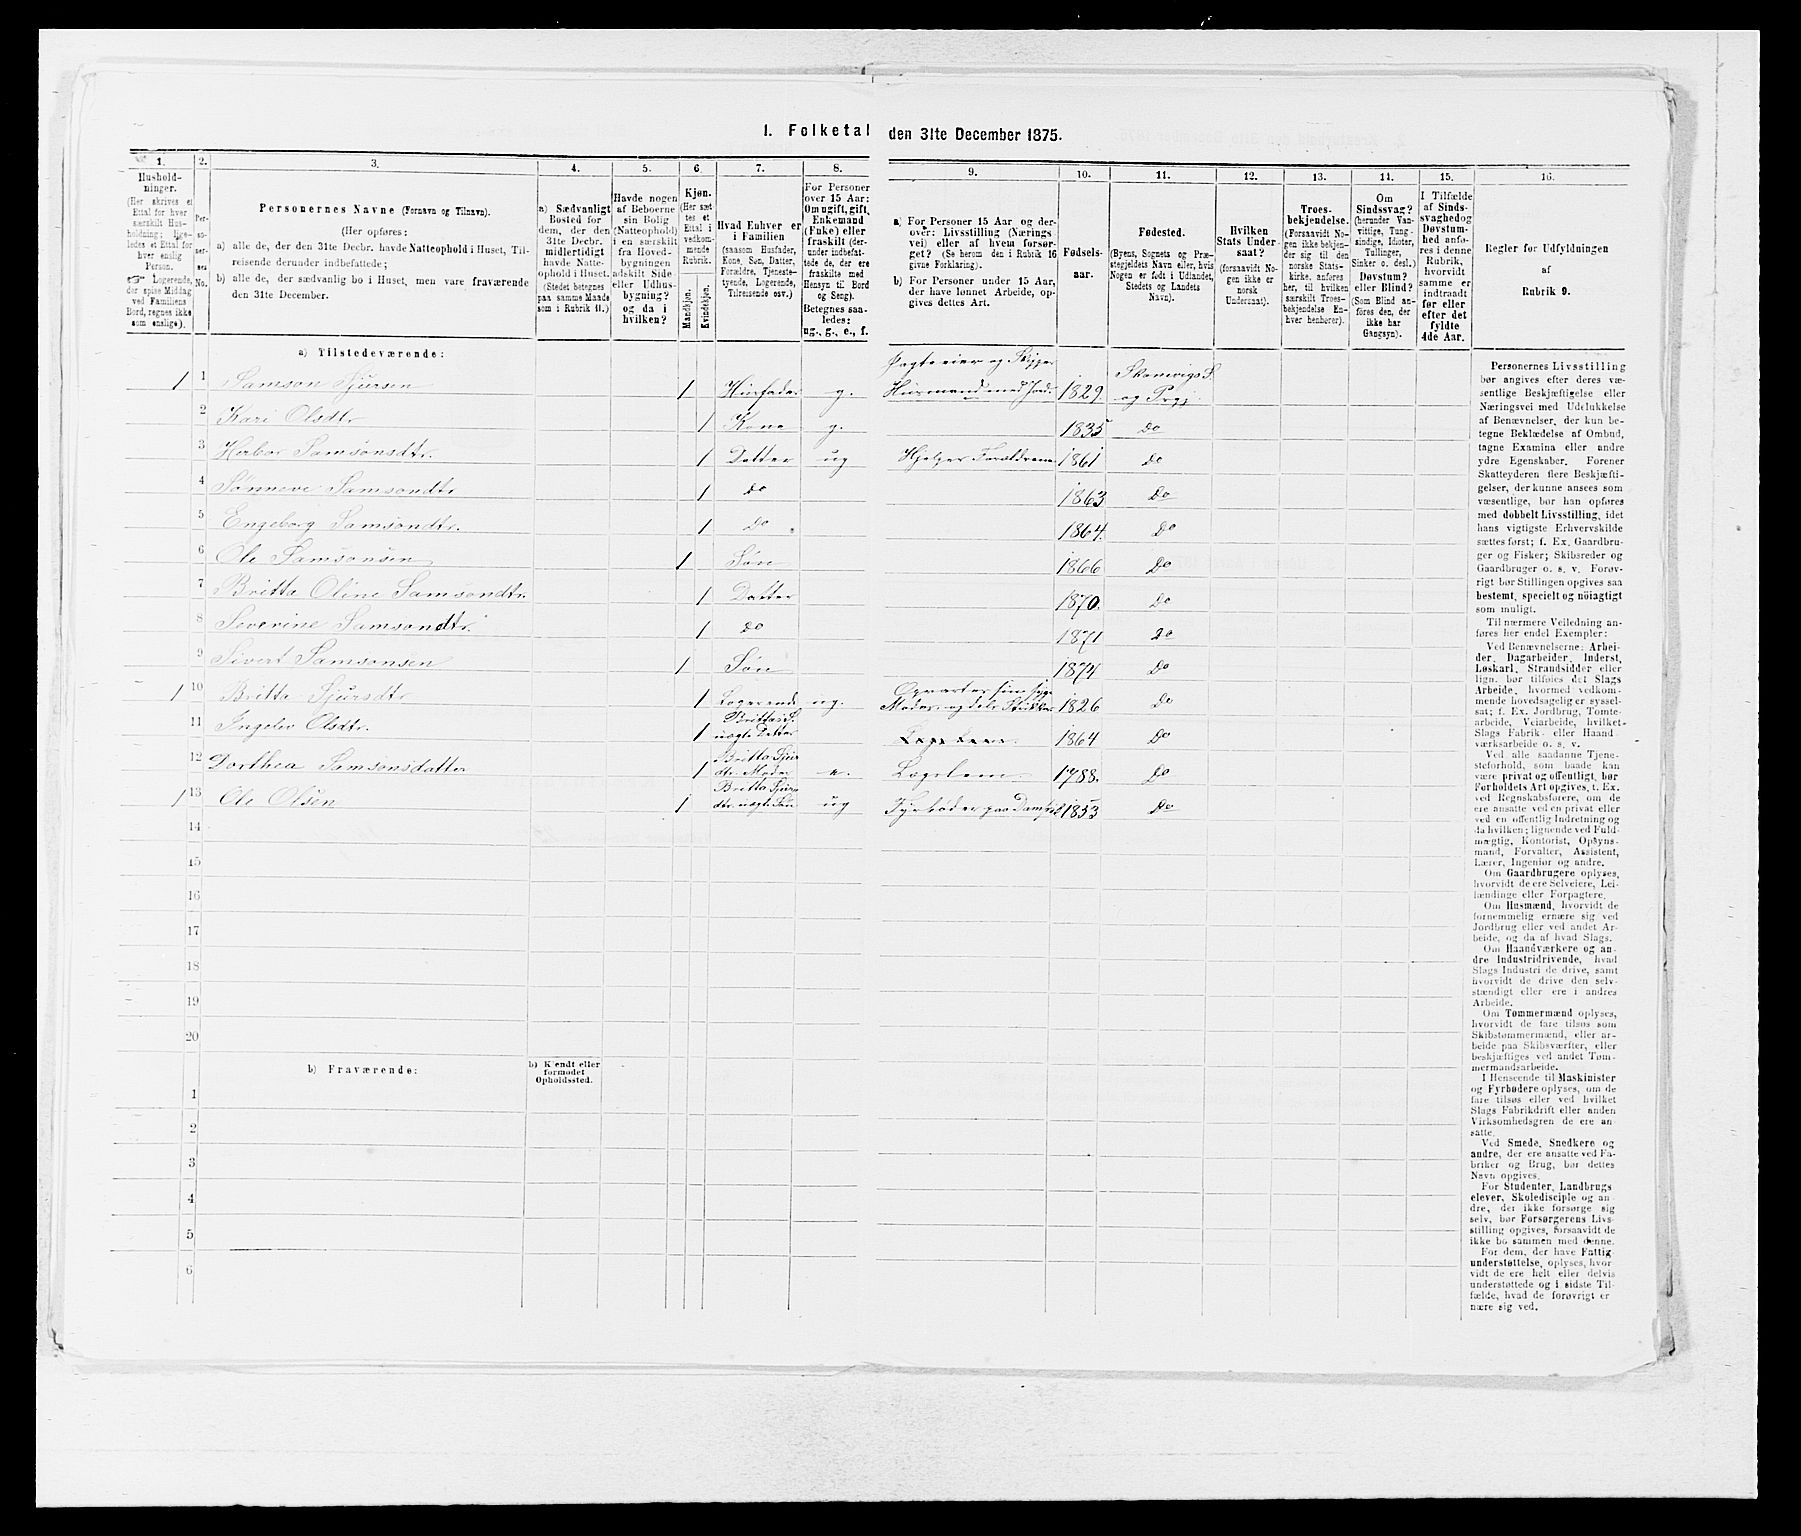 I. Folketal den 31te December 1875.
1.
Hushold-
ninger.
(Her skrives et
Ettal for hver
særskilt Hus-
holdning; lige-
ledes et Ettal for
hver enslig
Person.
☞ Logerende,
der spise Middag
ved Familiens
Bord, regnes ikke
som enslige).
2.
Per-
so-
ner-
nes
No.
3.
Personernes Navne (Fornavn og Tilnavn).
(Her opføres:
a) alle de, der den 31te Decbr. havde Natteophold i Huset, Til-
reisende derunder indbefattede;
b) alle de, der sædvanlig bo i Huset, men vare fraværende
den 31te December.
4.
a) Sædvanligt
Bosted for
dem, der den
31te Decbr.
midlertidigt
havde Natte-
ophold i Huset.
(Stedet betegnes
paa samme Maade
som i Rubrik 11.)
5.
Havde nogen
af Beboerne
sin Bolig
(Natteophold)
i en særskilt
fra Hoved-
bygningen
adskilt Side-
eller Udhus-
bygning?
og da i
hvilken?
6.
Kjøn.
(Her sæt-
tes et
Ettal i
vedkom-
mende
Rubrik.
Mandkjøn.
Kvindekjøn.
7.
Hvad Enhver er
i Familien
(saasom Husfader,
Kone, Søn, Datter,
Forældre, Tjeneste-
tyende, Logerende,
Tilreisende osv.)
8.
For Personer
over 15 Aar:
Om ugift, gift,
Enkemand
(Enke) eller
fraskilt (der-
under indbefat-
tede de, der ere
fraskilte med
Hensyn til Bord
og Seng).
Betegnes saa-
ledes:
ug., g., e., f.
9.
a) For Personer 15 Aar og der-
over: Livsstilling (Nærings
vei) eller af hvem forsør-
get? (Se herom den i Rubrik 16
givne Forklaring).
b) For Personer under 15 Aar,
der have lønnet Arbeide, op-
gives dettes Art.
10.
Fødsels-
aar.
11.
Fødested.
(Byens, Sognets og Præ-
stegjeldets Navn eller, hvis
Nogen er født i Udlandet,
Stedets og Landets
Navn).
12.
Hvilken
Stats Under-
saat?
(forsaavidt No-
gen ikke er
norsk
Undersaat).
13.
Troes-
bekjendelse.
(Forsaavidt No-
gen ikke bekjen-
der sig til den
norske Stats-
kirke, anføres
her, til hvilken
særskilt Troes-
bekjendelse En-
hver henhører).
14.
Om
Sindssvag?
(herunder Van-
vittige, Tung-
sindige, Idioter,
Tullinger,
Sinker o. desl.)
Døvstum?
eller Blind?
(Som Blind an-
føres den, der
ikke har
Gangsyn).
15.
I Tilfælde
af Sinds-
svaghed og
Døvstum-
hed anfø-
res i denne
Rubrik,
hvorvidt
samme er
indtraadt
før eller
efter det
fyldte
4de Aar.
16.
Regler for Udfyldningen
af
Rubrik 9.
a) Tilstedeværende:
1 1 Samson Sjursen 1 Husfader g. Jagteeier og Skipper Husmand med Jord. 1829. Skonevigs S. og Prgj.
2 Kari Olsdtr 1 Kone g. 1835 Do
3 Herbor Samsonsdtr. 1 Datter ug Hjelper Foreldrene 1861 Do
4 Sønneve Samsondtr 1 Do 1863 Do
5 Engeborg Samsondtr. 1 Do 1864. Do
6 Ole Samsonsen 1 Søn 1866 Do
7 Britta Oline Samsondtr. 1 Datter 1870. Do
8 Severine Samsondtr. 1 Do 1871 Do
9 Sivert Samsonsen 1 Søn 1874 Do
1 10 Britta Sjursdtr 1 Logerende ug. Opvarter sin syge Moder 1826 Do
11 Ingelev Olsdtr. 1 Brittas S. uægte Datter 1864 Do
12 Dorthea Samsonsdatter 1 Britta Sjurdtr. Moder e. Lægslem 1788. Do
1 13 Ole Olsen 1 Britta Sjursdtr. uægte Søn ug Fyrbøder paa Dampsk 1853 Do
14
15
16
17
18
19
20
b) Fraværende:
b) Kjendt eller
formodet
Opholdssted.
1
2
3
4
5
6
Personernes Livsstilling
bør angives efter deres væ-
sentlige Beskjæftigelse eller
Næringsvei med Udelukkelse
af Benævnelser, der kun be-
tegne Beklædelse af Ombud,
tagne Examina eller andre
ydre Egenskaber. Forener
Skatteyderen flere Beskjæfti-
gelser, der kunne ansees som
væsentlige, bør han opføres
med dobbelt Livsstilling, idet
hans vigtigste Erhvervskilde
sættes først; f. Ex. Gaardbru-
ger og Fisker; Skibsreder og
Gaardbruger o. s. v. Forøv-
rigt bør Stillingen opgives saa
bestemt, specielt og nöiagtigt
som muligt.
Til nærmere Veiledning an-
føres her endel Exempler:
Ved Benævnelserne: Arbei-
der, Dagarbeider, Inderst,
Løskarl, Strandsidder eller
lign. bør tilføies det Slags
Arbeide, hvormed vedkom-
mende hovedsagelig er syssel-
sat; f. Ex. Jordbrug, Tomte-
arbeide, Veiarbeide, hvilket-
Slags Fabrik- eller Haand
værksarbeide o. s. v.
Ved alle saadanne Tjene-
steforhold, som baade kan
være privat og offentligt, bør
Forholdets Art opgives, t. Ex.
ved Regnskabsførere, om de
ere ansatte ved en privat eller
ved en offentlig Indretning og
da hvilken; lignende ved Fuld-
mægtig, Kontorist, Opsyns-
mand, Forvalter, Assistent,
Lærer, Ingeniør og andre.
Om Gaardbrugere oplyses,
hvorvidt de ere Selveiere, Lei-
lændinge eller Forpagtere.
Om Husmænd, hvorvidt de
fornemmelig ernære sig ved
Jordbrug eller ved andet Ar-
beide, og da af hvad Slags.
Om Haandværkere og an-
dre Industridrivende, hvad
Slags Industri de drive, samt
hvorvidt de drive den selv-
stændigt eller ere i andres
Arbeide.
Om Tømmermænd oplyses,
hvorvidt de fare tilsøs som
Skibstømmermænd, eller ar-
beide paa Skibsværfter, eller
beskjæftiges ved andet Tøm-
mermandsarbeide.
I Henseende til Maskinister
og Fyrbødere oplyses, om de
fare tilsøs eller ved hvilket
Slags Fabrikdrift eller anden
Virksomhedsgren de ere an-
satte.
Ved Smede, Snedkere og
andre, der ere ansatte ved Fa-
briker og Brug, bør dettes
Navn opgives.
For Studenter, Landbrugs
elever, Skoledisciple og an-
dre, der ikke forsørge sig
selv, bør Forsørgerens Livs-
stilling opgives, forsaavidt de
ikke bo sammen med denne.
For dem, der have Fattig
understøttelse, oplyses, hvor
vidt de ere helt eller delvis
understøttede og i sidste Til-
fælde, hvad de forøvrigt er
nære sig ved.